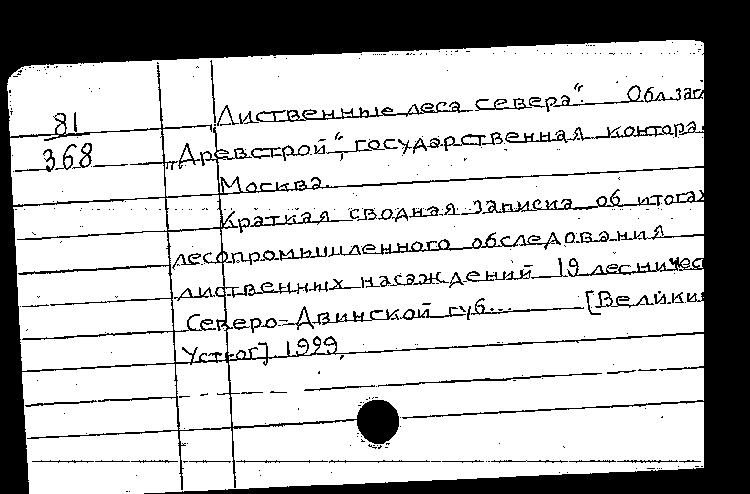 81
368
„Лиственные леса севера“. Обл.заг
„Древстрой“, государственная контора.
Москва.
Краткая сводная записка об итогах
лесопромышленного обследования
лиственных насаждений 19 лесничес
Северо-Двинской губ... [Велики
Устюг] 1929.